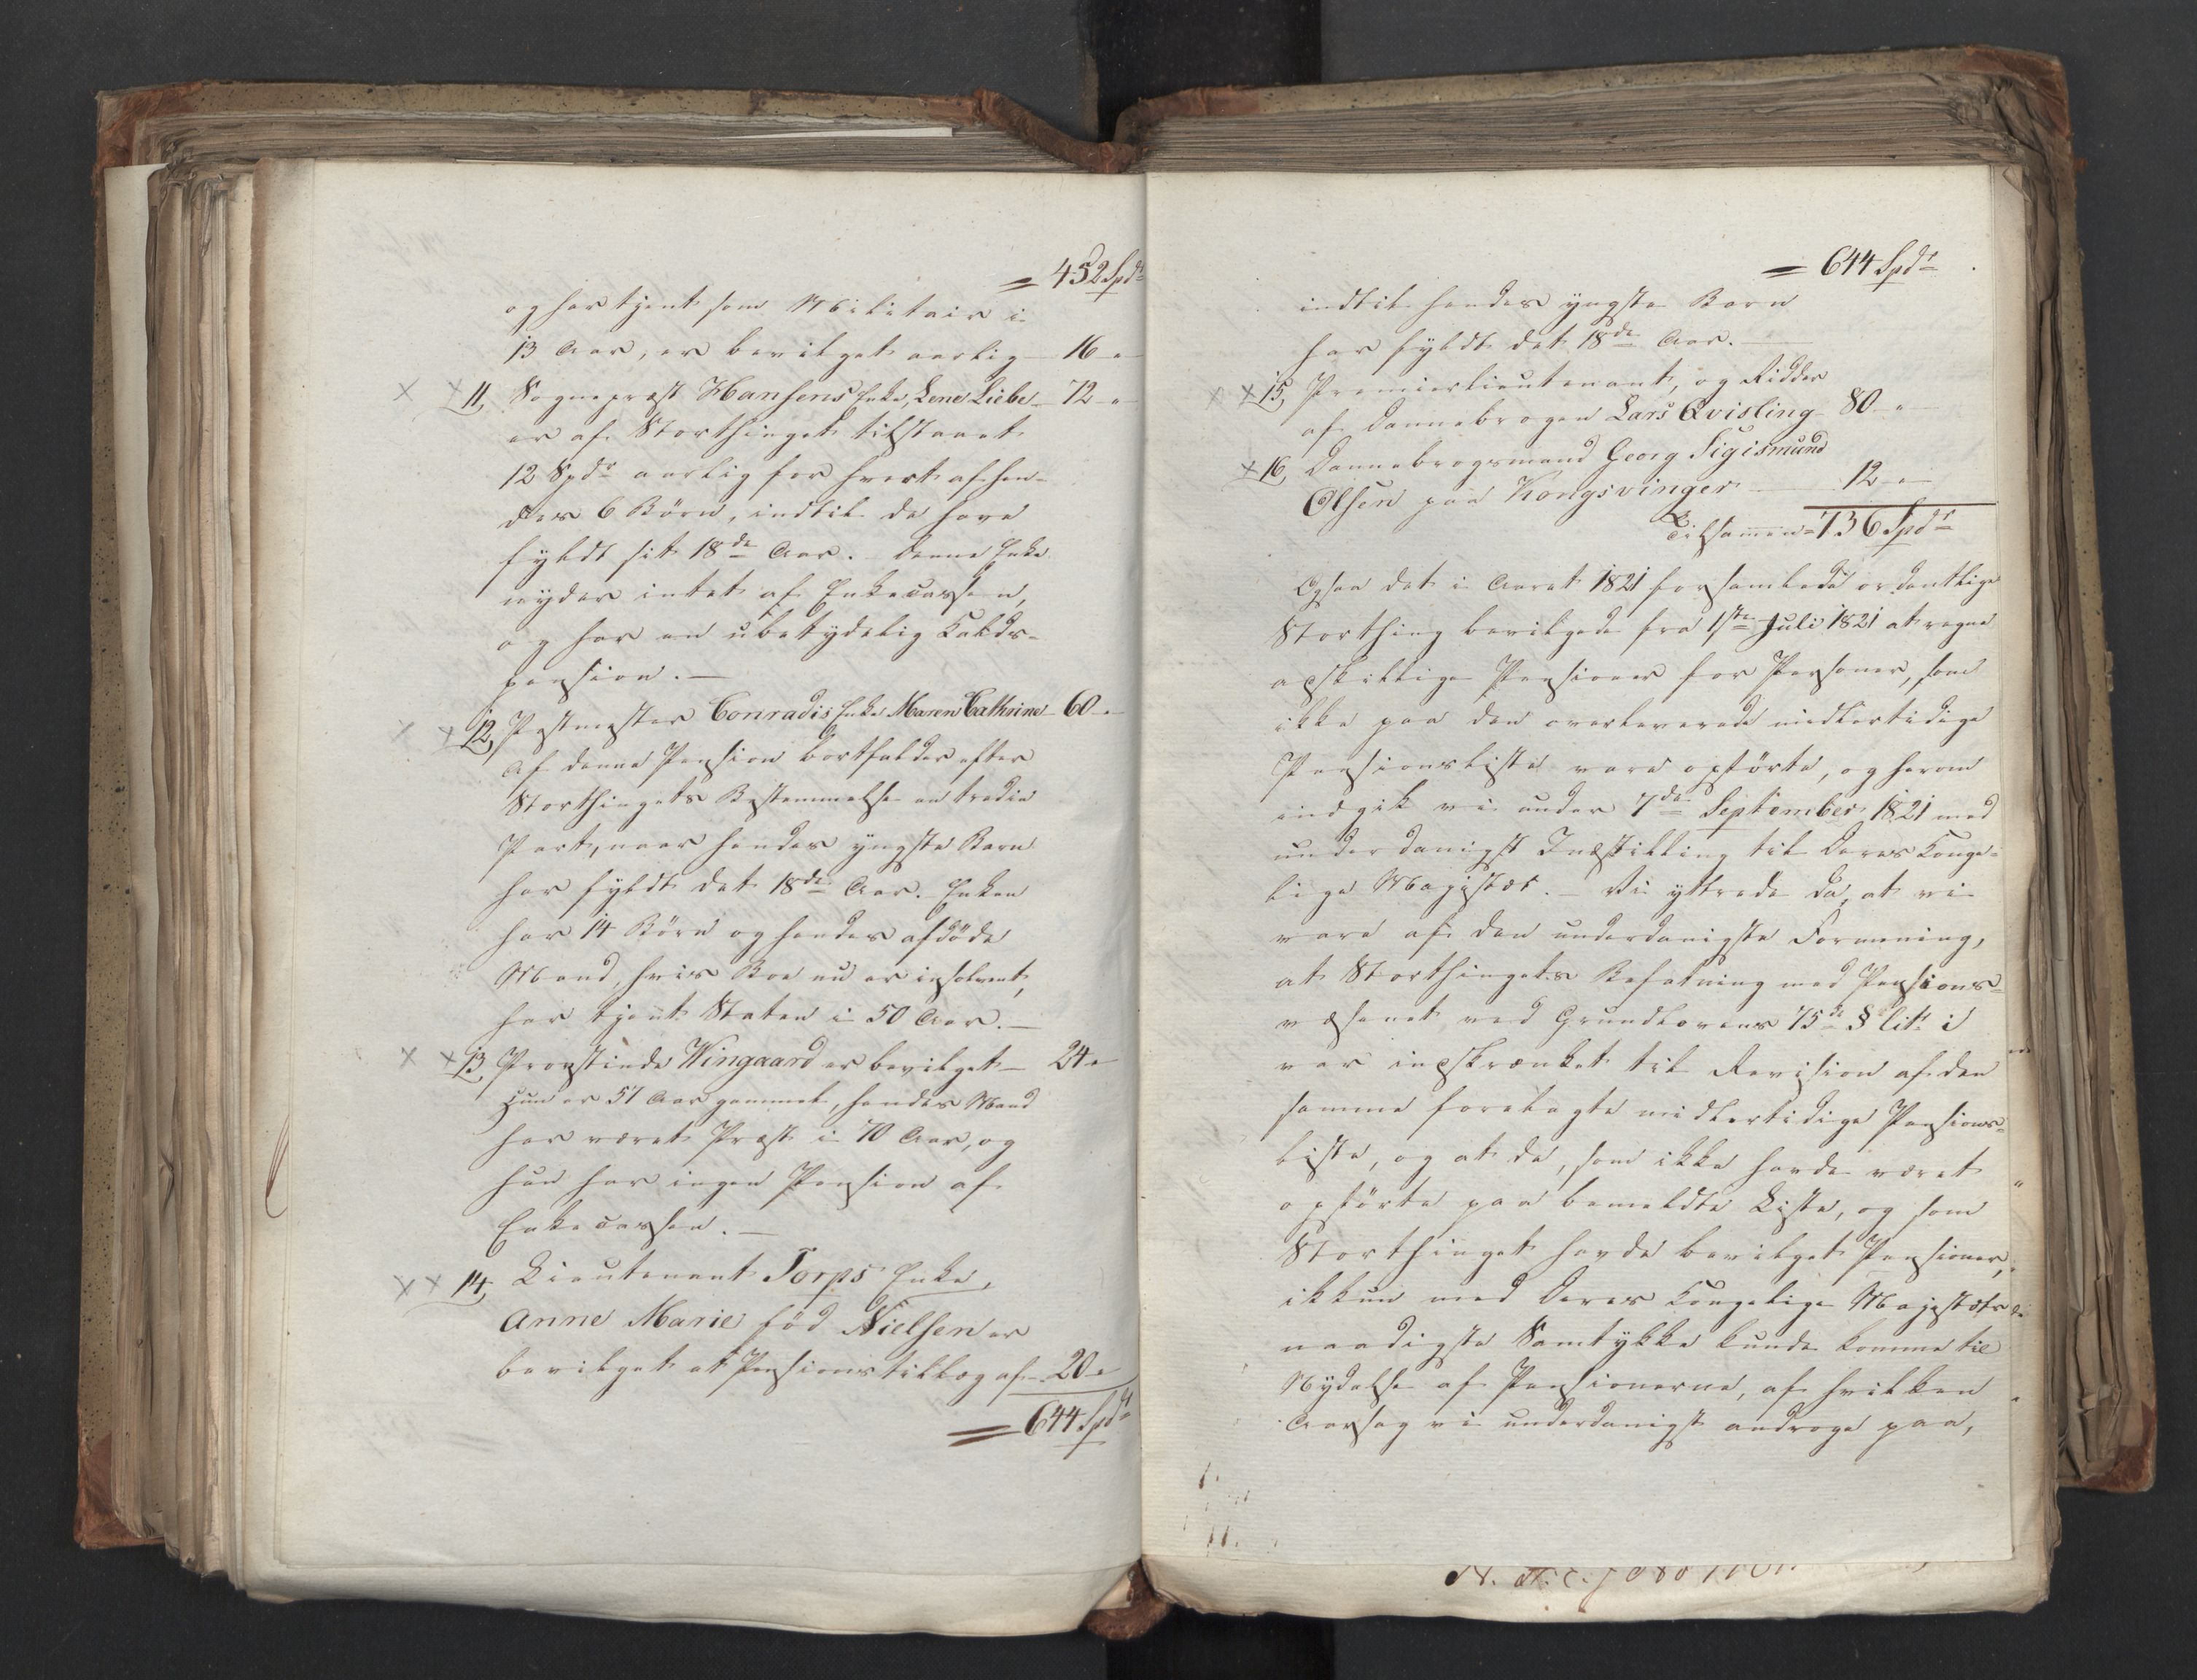 = 452 Spdr
og har tjent som Militair i
13 Aar, er bevilget aarlig — 16 "
11, Sognepræst Hansens Enke, Lene Liebe — 72 "
er af Storthinget tilstaaet
12 Spdr aarlig for hvert af hen-
des 6 Börn, indtil de have
fyldt sit 18de Aar. Denne Enke
nyder intet af Enkecassen,
og har en ubetydelig Kalds-
pension. —
12, Postmester Conradis Enke Maren Cathrine — 60 "
Af denne Pension bortfalder efter
Storthingets Bestemmelse en tredie
Part, naar hendes yngste Barn
har fyldt det 18de Aar. Enken
har 14 Börn og hendes afdöde
Mand, hvis Boe nu er insolvent,
har tjent Staten i 50 Aar. —
13, Provstinde Wingaard er bevilget — 24 "
Hun er 57 Aar gammel, hendes Mand
har været Præst i 70 Aar, og
hun har ingen Pension af
Enkecassen. —
14, Lieutenant Torps Enke,
Anne Marie fød Nielsen er
bevilget et Pensionstillæg af — 20 "
= 644 Spdr
= 644 Spdr
indtil hendes yngste Barn
har fyldt det 18de Aar. —
15, Premierlieutenant, og Ridder
af Dannebrogen Lars Qvisling — 80 "
16, Dannebrogsmand Georg Sigismund
Olsen paa Kongsvinger — 12 "
Tilsammen = 736 Spdr
Ogsaa det i Aaret 1821 forsamlede ordentlige
Storthing bevilgede fra 1ste Juli 1821 at regne
adskillige Pensioner for Personer, som
ikke paa den overleverede midlertidige
Pensionsliste vare opförte, og herom
indgik vi under 7de September 1821 med
underdanigst Indstilling til Deres Konge-
lige Majestæt. Vi yttrede da, at vi
vare af den underdanigste Formening,
at Storthingets Befatning med Pensions-
væsenet ved Grundlovens 75de § lit. i
var indskrænket til Revision af den
samme forelagte midlertidige Pensions-
liste, og at de, som ikke havde været
opförte paa bemeldte Liste, og som
Storthinget havde bevilget Pensioner,
ikkun med Deres Kongelige Majestæts
naadigste Samtykke kunde komme til
Nydelse af Pensionerne, af hvilken
Aarsag vi underdanigst androge paa,